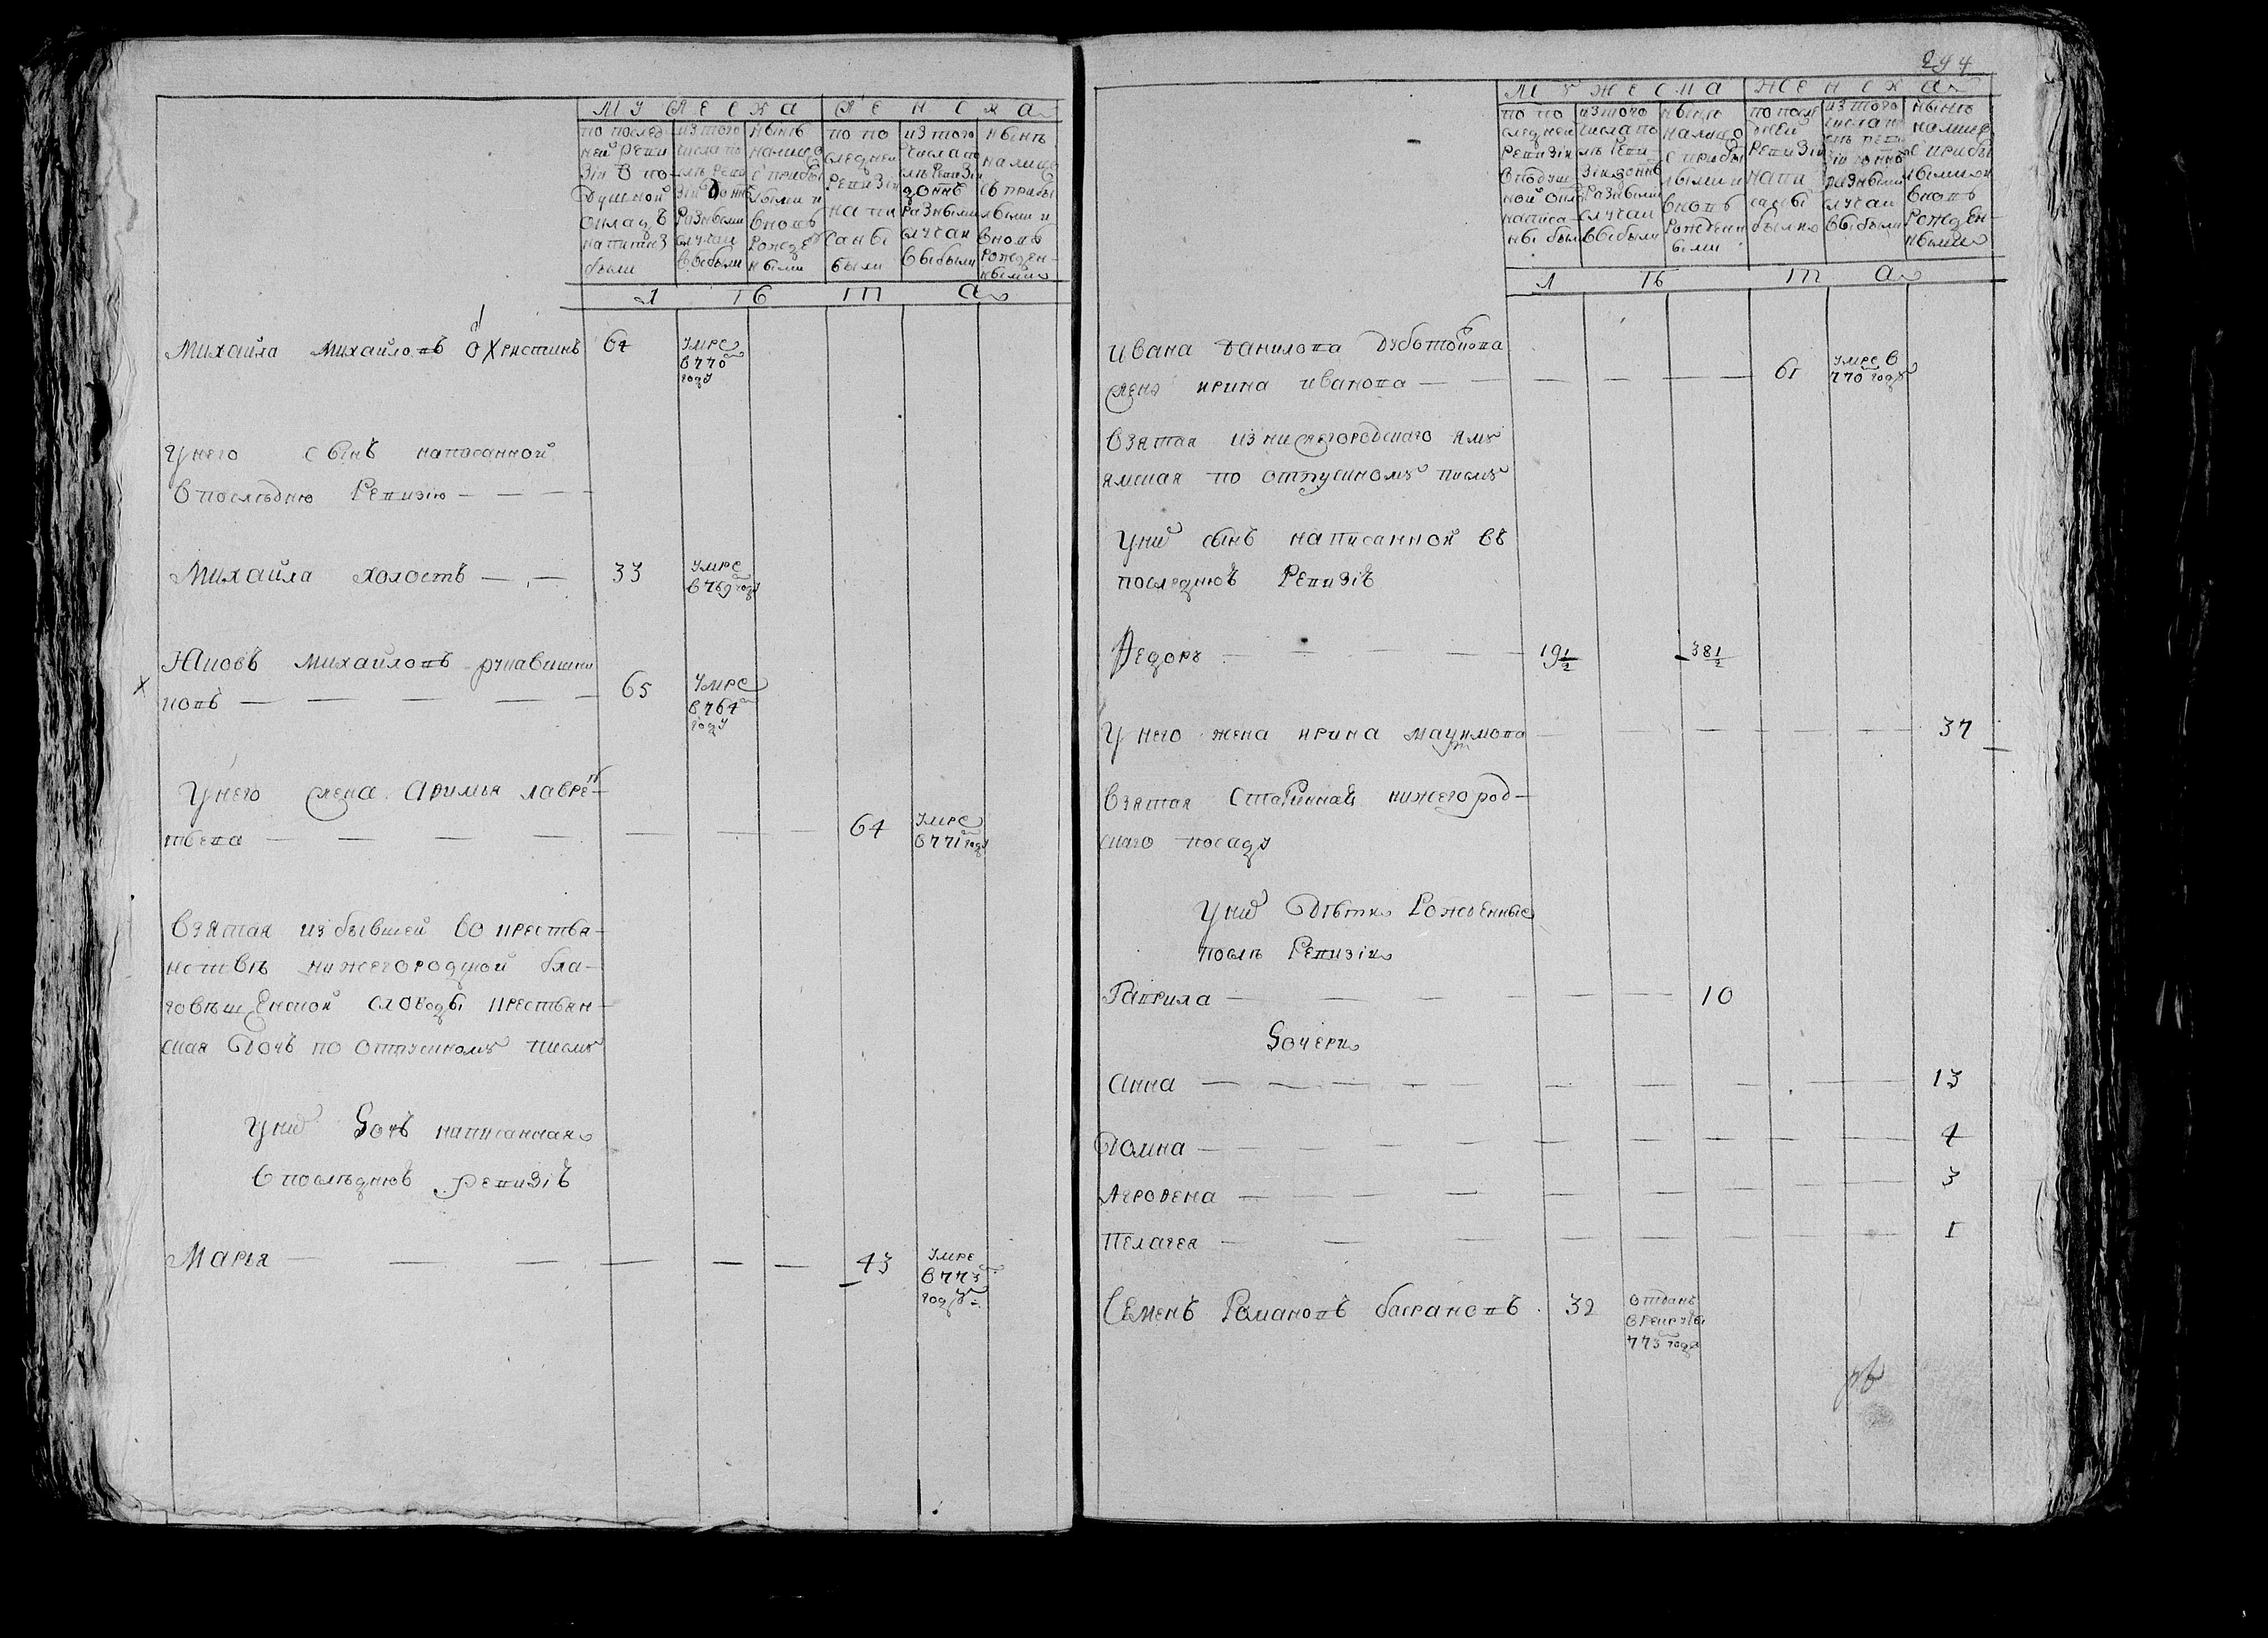 МУЖЕСКА ЖЕНСКА
по послед ней Ревизiи в по душной окладъ написанъ были
изъ того числа по слѣ Реви зiи до ннѣ разными случаи выбыли
нынѣ налицо с прибы лыми и вновь рожде нными
по по следней Ревизiи на пи саны были
из того числа по слѣ Ревизiи до ннѣ разными случаи выбыли
нынѣ налицо съ прибы лыми и вновь рожден ными
Л Ѣ Т А
Михайла Михайловъ 64 умре в 770 году
У него сынъ написанной
в последнюю Ревизiю
Михайла холостъ 33 умре в 769 году
Яковъ Михайловъ рукавишни
ковъ 65 умре в 764 году
У него жена Афимья лаврен
тьева 64 умре в 771 году
взятая из бывшей во крестья
нствѣ нижегородцкой бла
говѣщенской слободы крестьян
ская дочь по отпускному писму
У них дочь написанная
в послѣднюю ревизiю
Марья 43 умре в 773 году
294
МУЖЕСКА ЖЕНСКА
по по следней Ревизiи в подуш ной окладъ написа ны были
из того числа по слѣ Реви зiи до ннѣ разными случаи выбыли
нынѣ налицо с прибы лыми и вновь рожденн ыми
по посл дней Ревизiи напи саны были
из того числа по слѣ реви зiи до ннѣ разными случаи выбыли
нынѣ налицо с прибы лыми и вновь рожден ными
Л Ѣ Т А
Ивана Данилова
жена ирина иванова 61 умре в 770 году
взятая из нижегородскаго яму
ямская по отпускному писму
У них сынъ написанной въ
последнюю Ревизiю
Федоръ 19 1/2 38 1/2
У него жена ирина 37
взятая старинная нижегород
скаго посаду
У них дѣти рожденные
послѣ Ревизiи
Гаврила 10
Дочери
Анна 13
Домна 4
Агрофена 3
Пелагея 1
Семенъ Романовъ 32 отданъ в рекруты 773 году